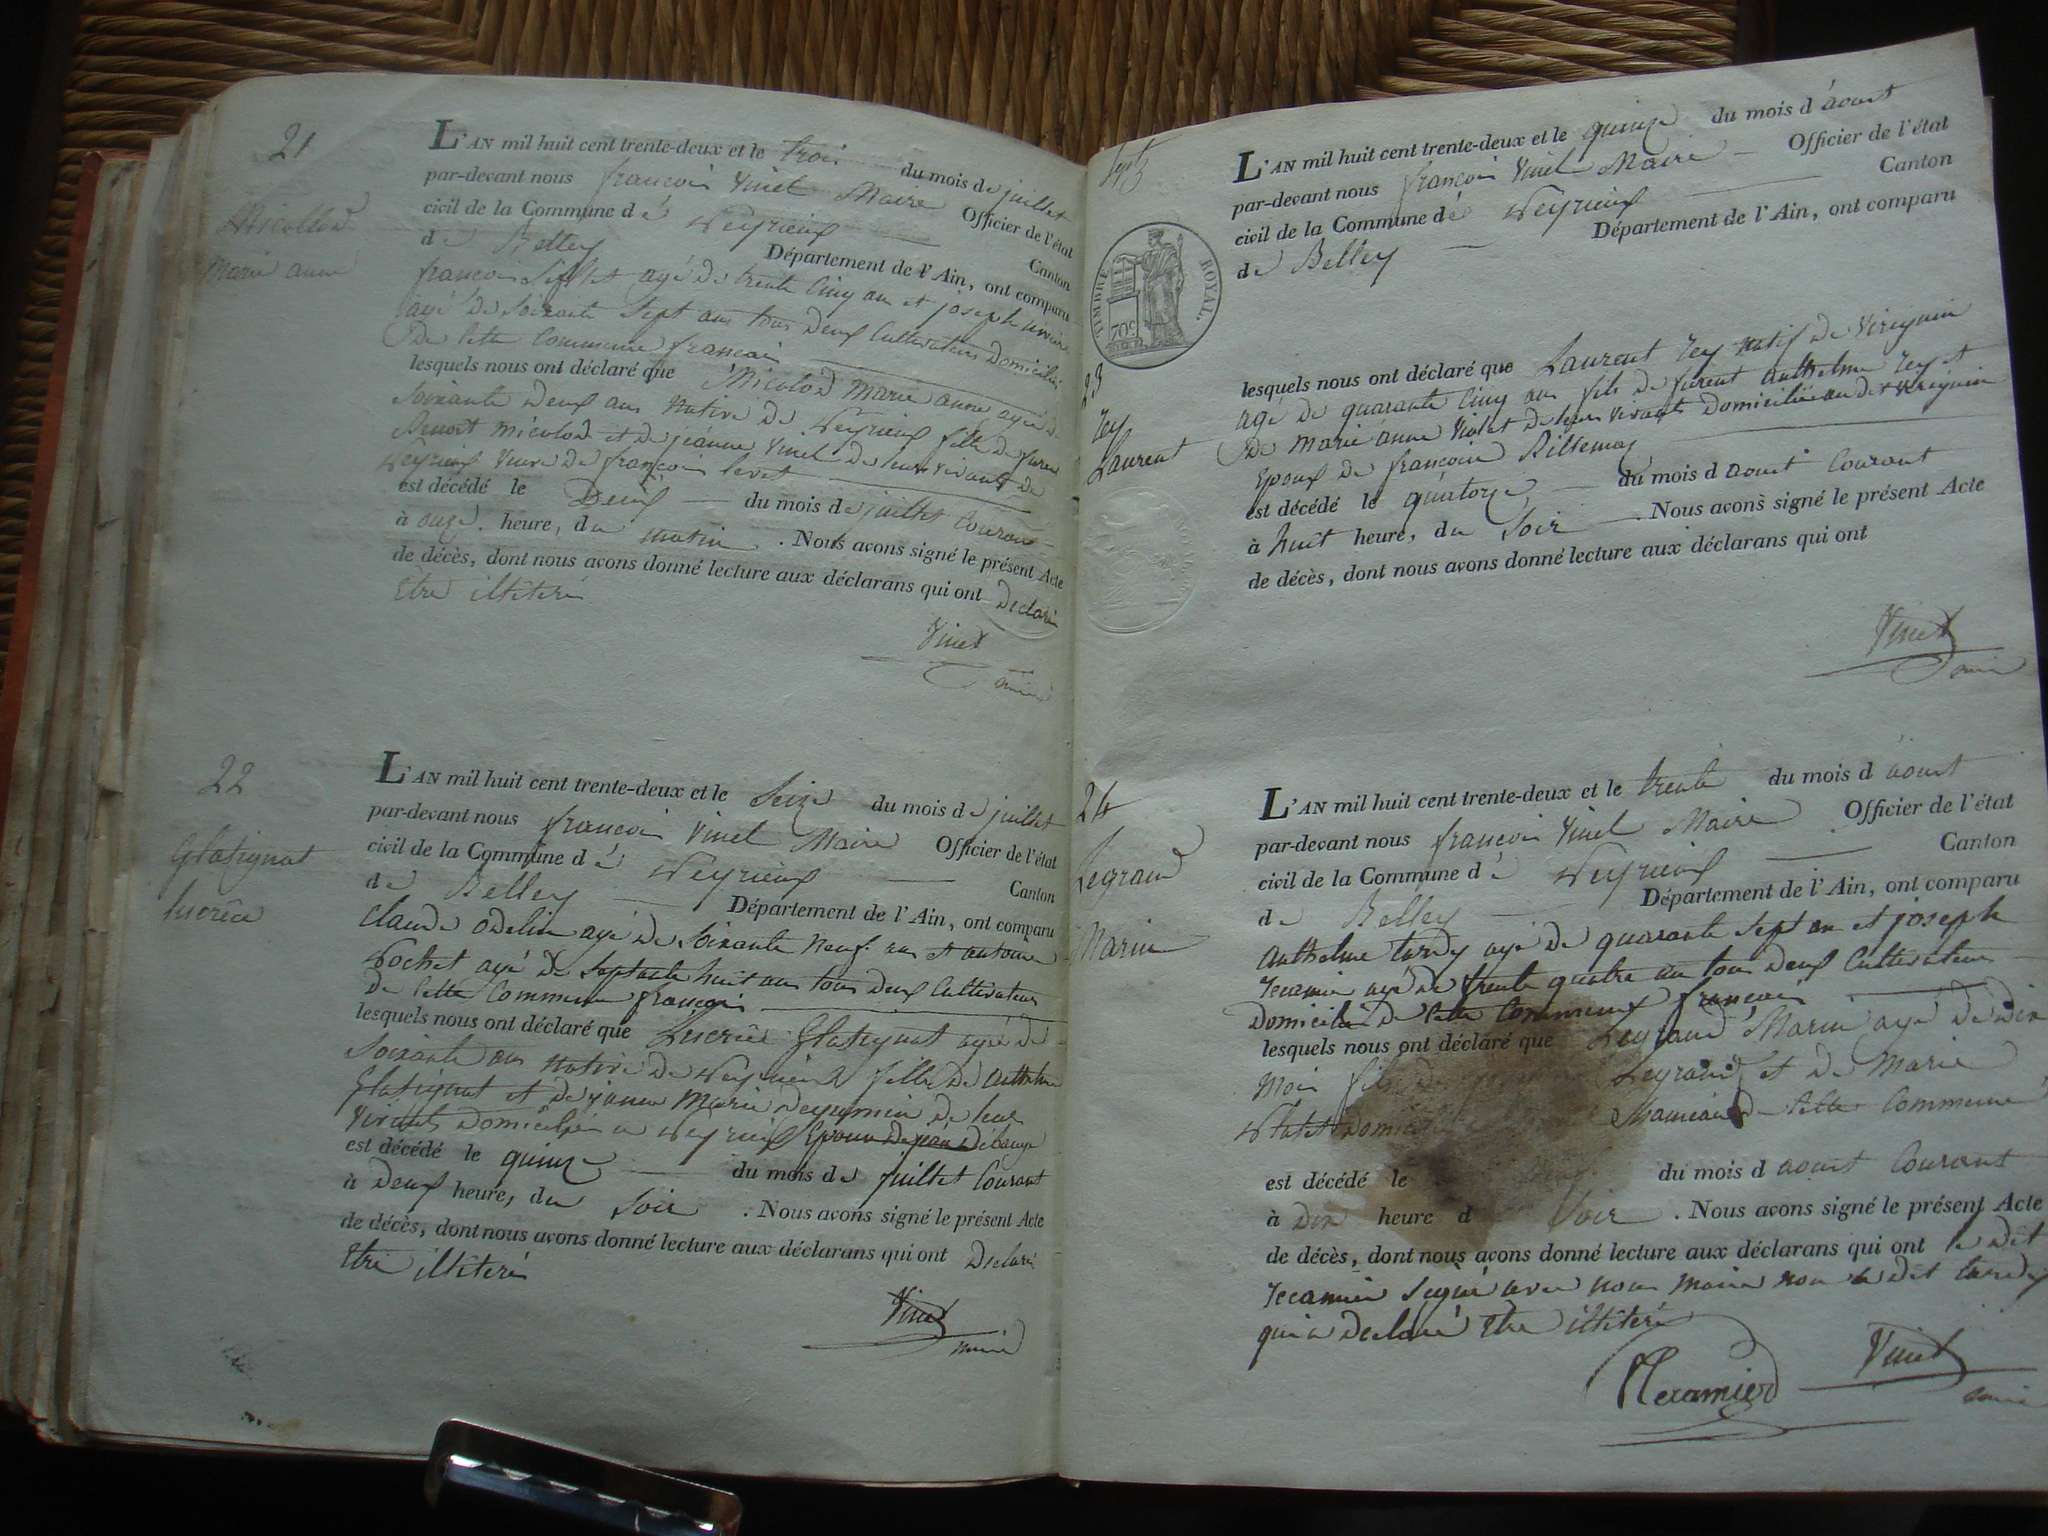 21
Micollod
Marie anne
L'AN mil huit cent trente-deux et le trois du mois de juillet
par-devant nous francois Vinet Maire Officier de l'état
civil de la Commune dé Peyrieux Canton
de Belley Département de l'Ain, ont comparu
francois agé de trente Cinq an et joseph
agé de soixante sept ans tous deux Cultivateurs Domiciliés
De Cette Commune francais
lesquels nous ont déclaré que Micolod Marie anne agée de
soixante deux ans Native de Peyrieux fille de furent
Benoit Micolod et de jeanne Vinet de leur vivants de
Peyrieux Veuve de francois
est décédé le Deux du mois de juillet Courant
à onze heure, du matin . Nous avons signé le présent Acte
de décès, dont nous avons donné lecture aux déclarans qui ont Declaré
Etre illitéré
Vinet
maire
22
Glatignat
lucrêce
L'AN mil huit cent trente-deux et le Seize du mois de juillet
par-devant nous francois Vinet Maire Officier de l'état
civil de la Commune dé Peyrieux Canton
de Belley Département de l'Ain, ont comparu
Claude odelin agé de Soixante Neuf ans et antoine
Pochet agé de Septante huit ans tous deux Cultivateurs
De Cette Commune francais
lesquels nous ont déclaré que Lucrêce Glatignat agée de
Soixante ans Native de Peyrieux fille de anthelme
Glatignat et de janne Marie de leur
vivants Domiciliés a Peyrieux Epouse De jean
est décédé le quinze du mois de juillet Courant
à Deux heure, du Soir . Nous avons signé le présent Acte
de décès, dont nous avons donné lecture aux déclarans qui ont Declaré
Etre illitéré
Vinet
maire
Sept
TIMBRE ROYAL
70c
23
rey
Laurent
L'AN mil huit cent trente-deux et le quinze du mois d'aout
par-devant nous francois Vinet Maire Officier de l'état
civil de la Commune dé Peyrieux Canton
de Belley Département de l'Ain, ont comparu
lesquels nous ont déclaré que Laurent rey natif de Virignin
agé de quarante Cinq ans fils de furent anthelme rey et
De Marie anne Violet de leurs vivants domiciliés au dit virignin
Epoux de francoise Billemaz
est décédé le quatorze du mois d aout Courant
à huit heure, du Soir . Nous avons signé le présent Acte
de décès, dont nous avons donné lecture aux déclarans qui ont
Vinet
maire
24
Legrand
Marin
L'AN mil huit cent trente-deux et le trente du mois d'aout
par-devant nous francois Vinet Maire Officier de l'état
civil de la Commune dé Peyrieux Canton
de Belley Département de l'Ain, ont comparu
anthelme tardy agé de quarante sept an et joseph
recamier agé de trente quatre an tous deux Cultivateurs
Domiciliés De Cette Commune francais
lesquels nous ont déclaré que Legrand Marin agé de Dix
Mois fils de Legrand et de Marie
de Cette Commune
est décédé le du mois d aout Courant
à Dix heure d Soir . Nous avons signé le présent Acte
de décès, dont nous avons donné lecture aux déclarans qui ont le dit
recamier signé avec nous maire non le dit tardy
qui a Declaré Etre illitéré
Recamier Vinet
maire